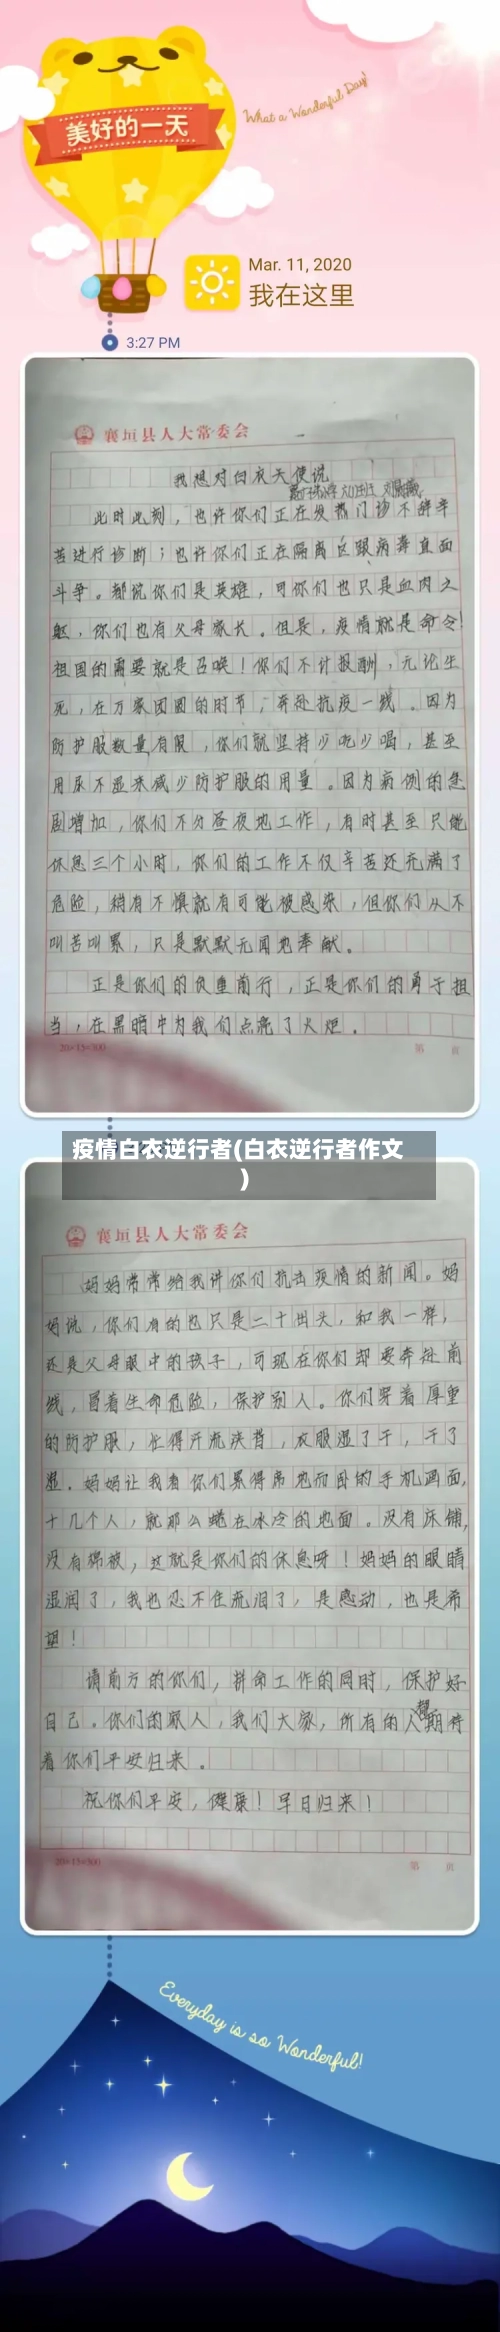 What a Wonderful Day!
美好的一天
Mar. 11, 2020
我在这里
3:27 PM
襄垣县人大常委会
我想对白衣天使说
此时此刻，也许你们正在发热门诊不辞辛
苦进行诊断；也许你们正在隔离区跟病毒直面
斗争。都说你们是英雄，可你们也只是血肉之
躯，你们也有父母家长。但是，疫情就是命令！
祖国的需要就是召唤！你们不计报酬，无论生
死，在万家团圆的时节，奔赴抗疫一线。因为
防护服数量有限，你们就坚持少吃少喝，甚至
用尿不湿来减少防护服的用量。因为病例的急
剧增加，你们不分昼夜地工作，有时甚至只能
休息三个小时，你们的工作不仅辛苦还充满了
危险，稍有不慎就有可能被感染，但你们从不
叫苦叫累，只是默默无闻地奉献。
正是你们的负重前行，正是你们的勇于担
当，在黑暗中为我们点亮了火炬。
20×15=300
第 页
疫情白衣逆行者(白衣逆行者作文
)
襄垣县人大常委会
妈妈常常给我讲你们抗击疫情的新闻。妈
妈说，你们有的也只是二十出头，和我一样，
还是父母眼中的孩子，可现在你们却要奔赴前
线，冒着生命危险，保护别人。你们穿着厚重
的防护服，忙得汗流浃背，衣服湿了干，干了
湿。妈妈让我看你们累得席地而卧的手机画面，
十几个人，就那么蜷在冰冷的地面。没有床铺，
没有棉被，这就是你们的休息呀！妈妈的眼睛
湿润了，我也忍不住流泪了，是感动，也是希
望！
请前方的你们，拼命工作的同时，保护好
自己。你们的家人，我们大家，所有的人都期待
着你们平安归来。
祝你们平安，健康！早日归来！
20×15=300
第 页
Everyday is so Wonderful!